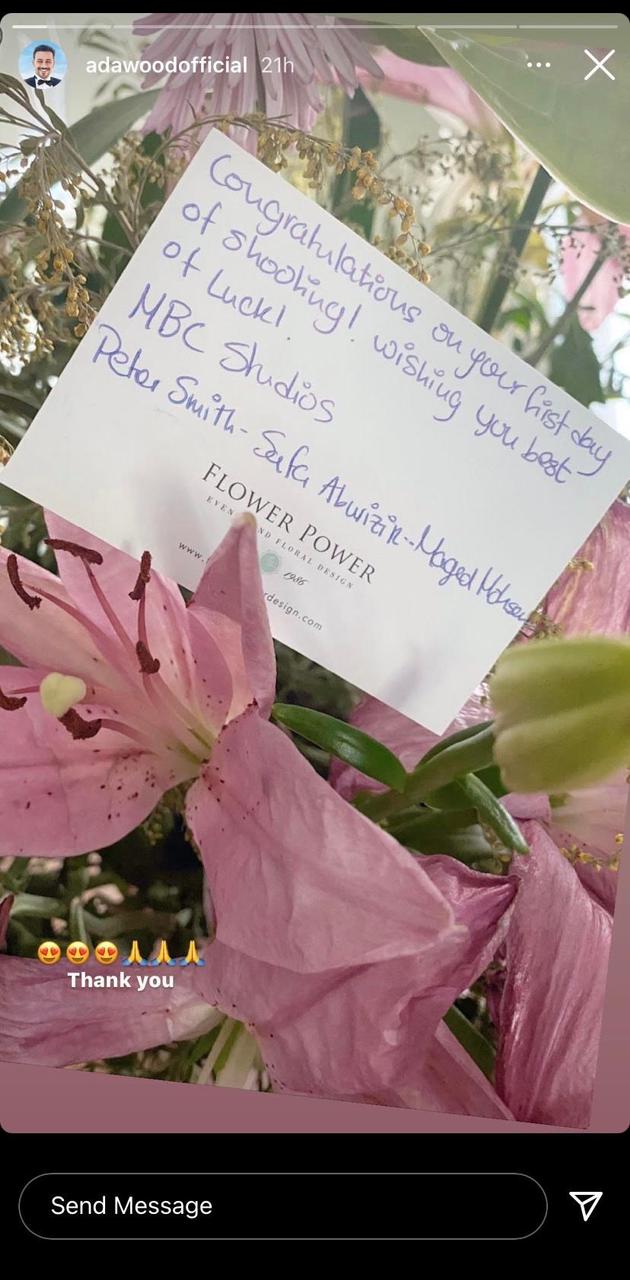 adawoodofficial 21h
Congratulations on your first day
of shooting! wishing you best
of Luck!
MBC Studios
Peter Smith - Safa Abwizir - Maged Mohsen
FLOWER POWER
AND FLORAL DESIGN
1986
www. rdesign.com
😍😍😍🙏🙏🙏
Thank you
Send Message